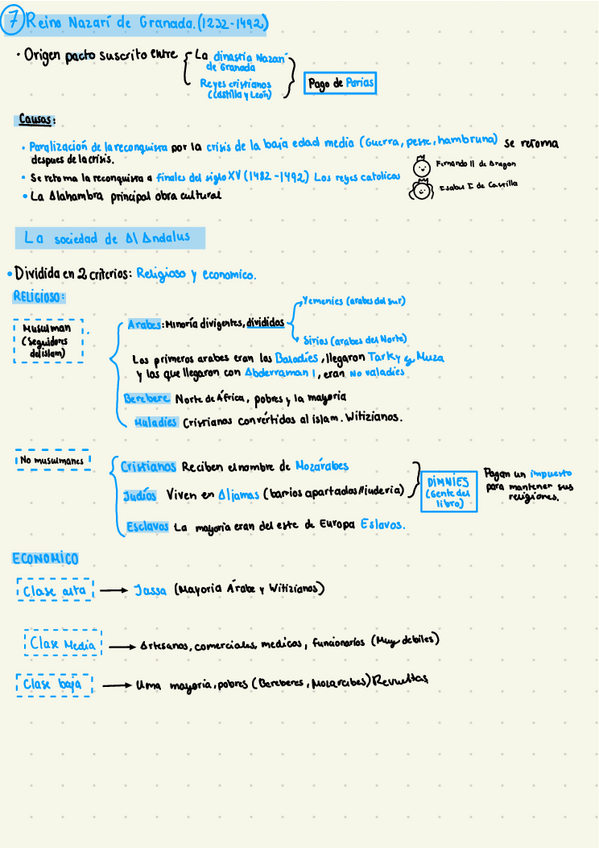 7 Reino Nazarí de Granada. (1232-1492)
• Origen pacto suscrito entre
La dinastía Nazarí de Granada
Reyes cristianos (Castilla y León)
Pago de Parias
Causas:
• Paralización de la reconquista por la crisis de la baja edad media (Guerra, peste, hambruna) se retoma
despues de la crisis.
• Se retoma la reconquista a finales del siglo XV (1482-1492) Los reyes catolicos
Fernando II de Aragon
Isabel I de Castilla
• La Alahambra principal obra cultural
La sociedad de Al Andalus
• Dividida en 2 criterios: Religioso y economico.
RELIGIOSO:
Musulman
(Seguidores
del islam)
Arabes: Minoría divigentes, divididos
Yemenies (arabes del sur)
Sirios (arabes del Norte)
Los primeros arabes eran las Baladíes, llegaron Tarky y Muza
y los que llegaron con Abderraman I, eran No valadíes
Berebere Norte de África, pobres y la mayoría
Muladíes Cristianos convertidos al islam. Witizianos.
No musulmanes
Cristianos Reciben el nombre de Mozárabes
Judíos Viven en Aljamas (barrios apartados//judería)
Esclavos La mayoría eran del este de Europa Eslavos.
DIMNIES
(Gente del
libro)
Pagan un impuesto
para mantener sus
religiones.
ECONOMICO
Clase alta → Jassa (Mayoria Árabe y Witizíanos)
Clase Media → Artesanos, comerciales, medicos, funcionarios (Muy debiles)
Clase baja → Uma mayoría, pobres (Bereberes, Mozarabes) Revueltas